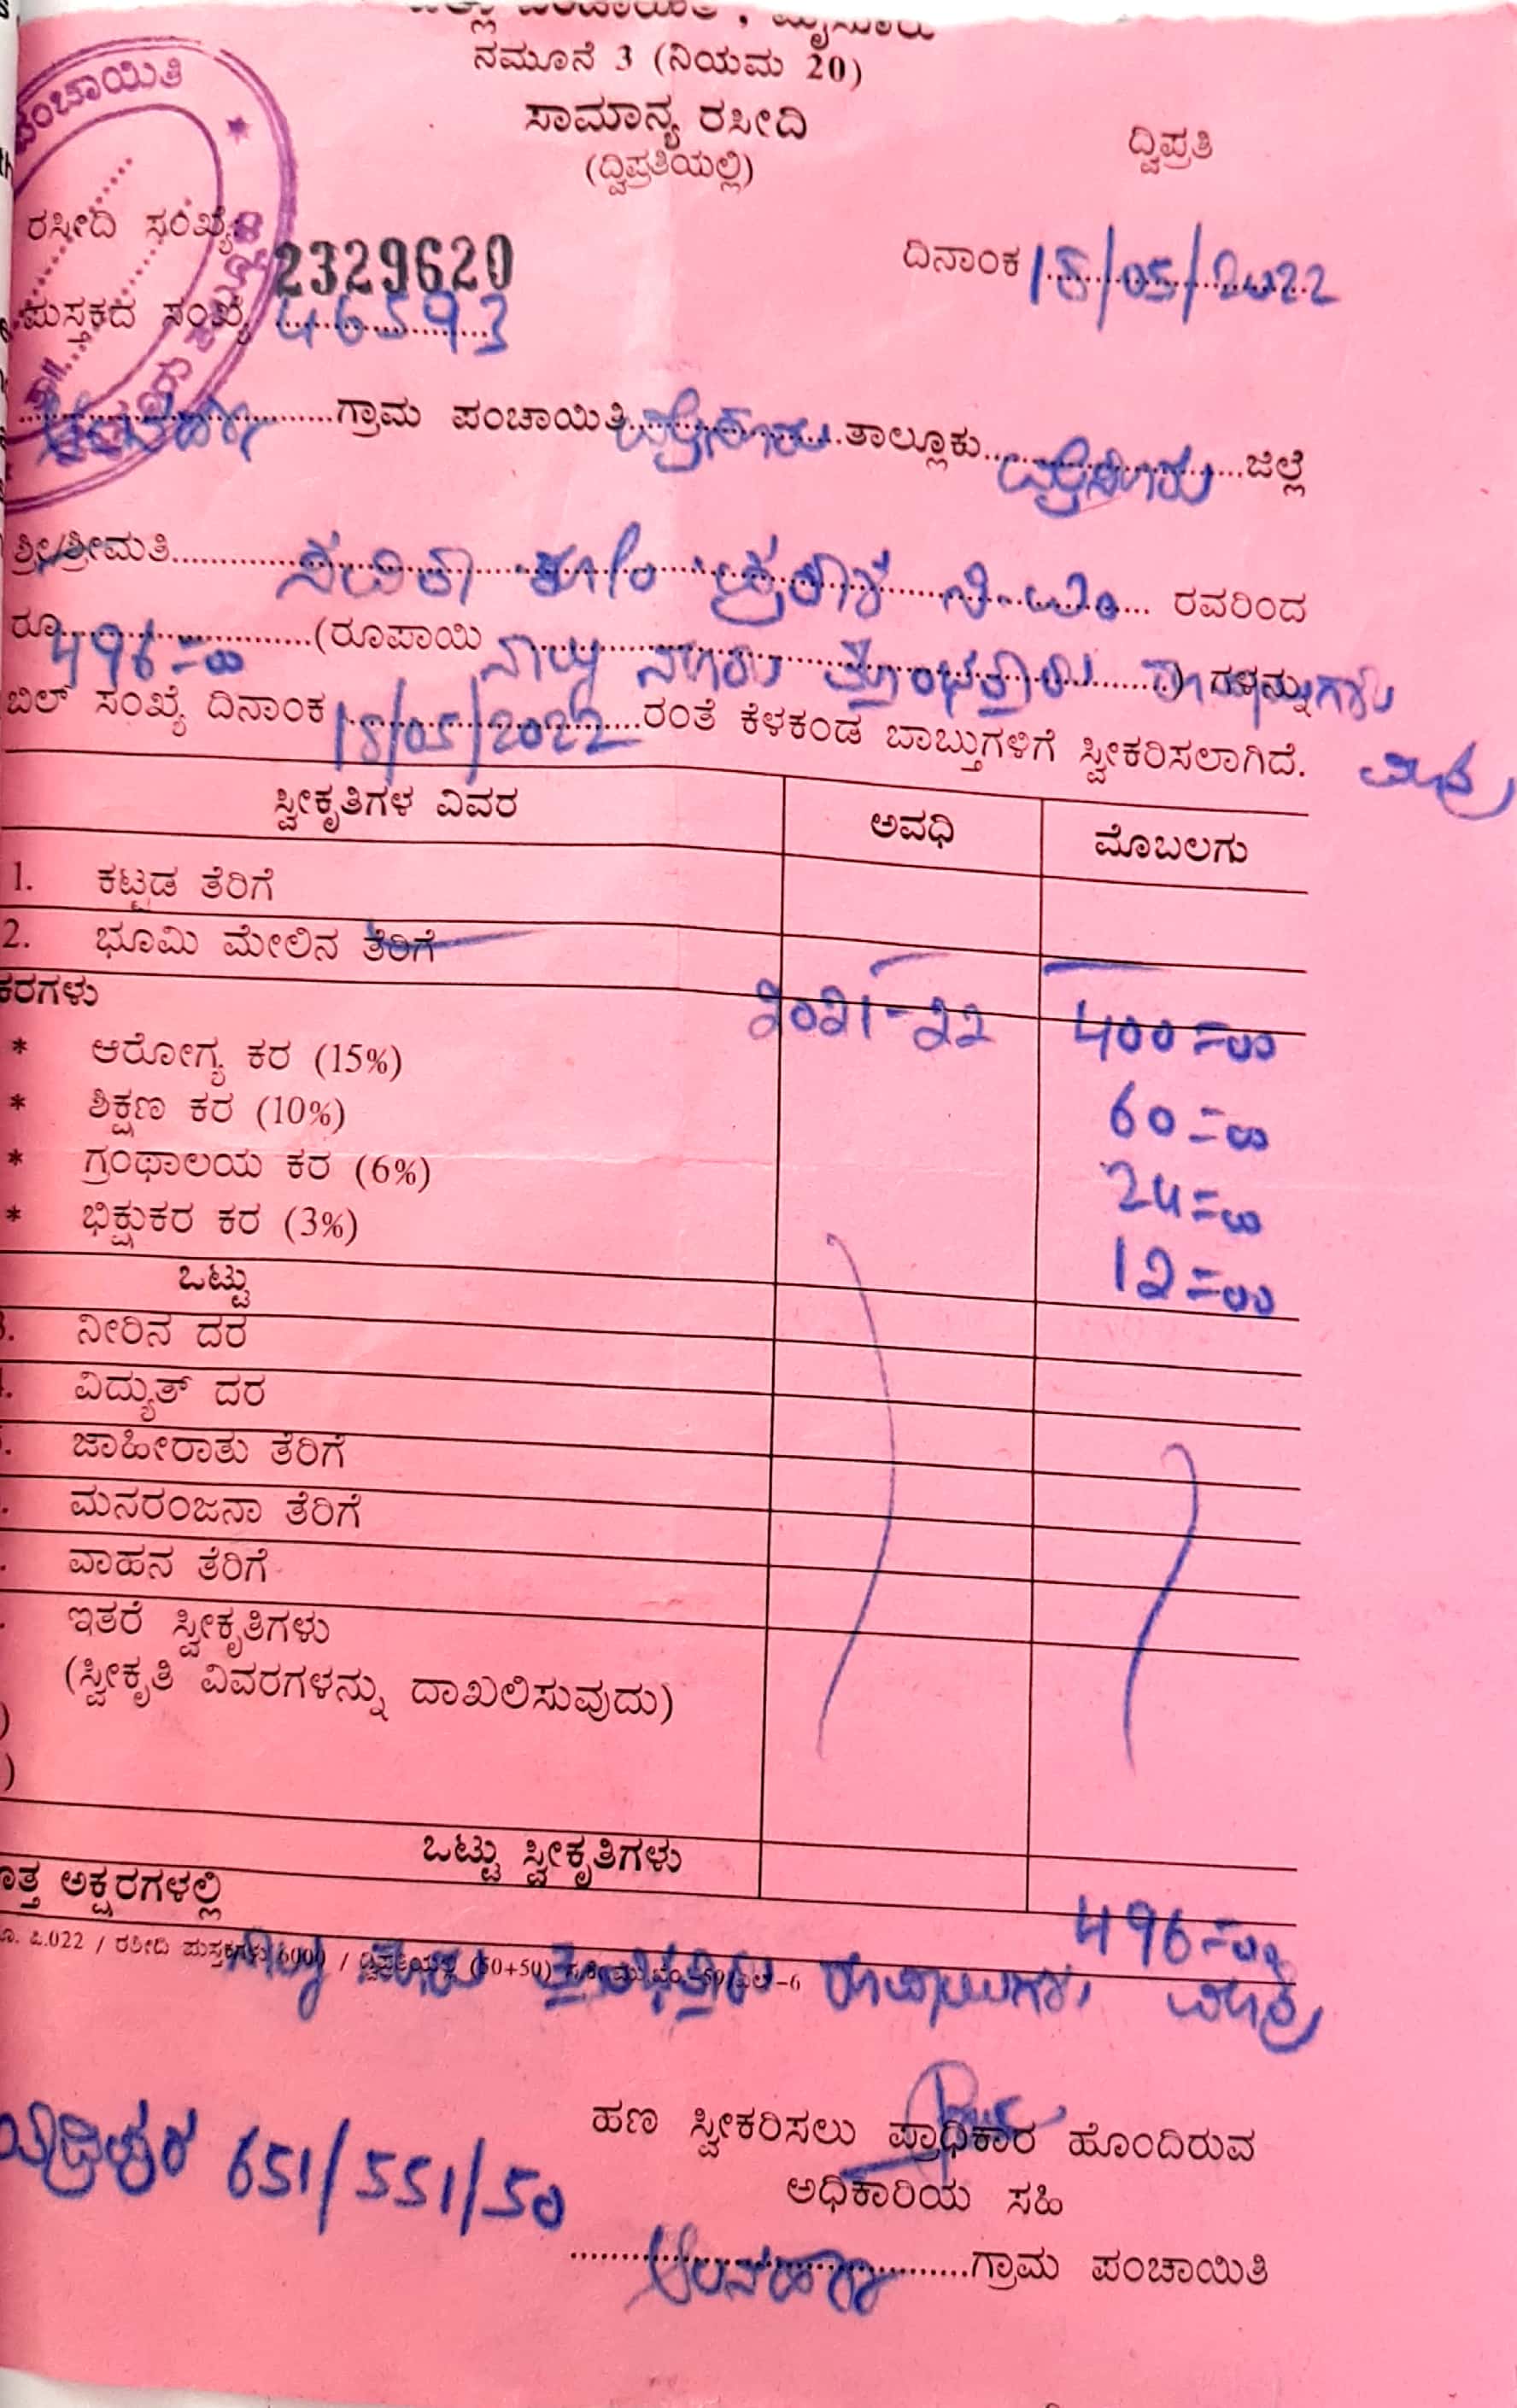 ಜಿಲ್ಲಾ ಪಂಚಾಯಿತಿ , ಮೈಸೂರು
ನಮೂನೆ 3 (ನಿಯಮ 20)
ಸಾಮಾನ್ಯ ರಸೀದಿ
(ದ್ವಿಪ್ರತಿಯಲ್ಲಿ)
ದ್ವಿಪ್ರತಿ
ಪಂಚಾಯಿತಿ
ರಸೀದಿ ಸಂಖ್ಯೆ 2329620
ದಿನಾಂಕ 18/05/2022
ಪುಸ್ತಕದ ಸಂಖ್ಯೆ 46593
ಆಲನಹಳ್ಳಿ ಗ್ರಾಮ ಪಂಚಾಯಿತಿ ಮೈಸೂರು ತಾಲ್ಲೂಕು ಮೈಸೂರು ಜಿಲ್ಲೆ
ಶ್ರೀ/ಶ್ರೀಮತಿ ಸವಿತಾ ಕೋಂ ಪ್ರಕಾಶ್ ಸಿ.ಎಂ ರವರಿಂದ
ರೂ 496=00 (ರೂಪಾಯಿ ನಾಲ್ಕು ನೂರು ತೊಂಭತ್ತಾರು ರೂಪಾಯಿಗಳು ಮಾತ್ರ ) ಗಳನ್ನು
ಬಿಲ್ ಸಂಖ್ಯೆ ದಿನಾಂಕ 18/05/2022 ರಂತೆ ಕೆಳಕಂಡ ಬಾಬ್ತುಗಳಿಗೆ ಸ್ವೀಕರಿಸಲಾಗಿದೆ.
ಸ್ವೀಕೃತಿಗಳ ವಿವರ ಅವಧಿ ಮೊಬಲಗು
1. ಕಟ್ಟಡ ತೆರಿಗೆ
2. ಭೂಮಿ ಮೇಲಿನ ತೆರಿಗೆ
ಕರಗಳು 2021-22 400=00
* ಆರೋಗ್ಯ ಕರ (15%) 60=00
* ಶಿಕ್ಷಣ ಕರ (10%)
* ಗ್ರಂಥಾಲಯ ಕರ (6%) 24=00
* ಭಿಕ್ಷುಕರ ಕರ (3%) 12=00
ಒಟ್ಟು
3. ನೀರಿನ ದರ
. ವಿದ್ಯುತ್ ದರ
. ಜಾಹೀರಾತು ತೆರಿಗೆ
. ಮನರಂಜನಾ ತೆರಿಗೆ
. ವಾಹನ ತೆರಿಗೆ
. ಇತರೆ ಸ್ವೀಕೃತಿಗಳು
(ಸ್ವೀಕೃತಿ ವಿವರಗಳನ್ನು ದಾಖಲಿಸುವುದು)
)
)
ಒಟ್ಟು ಸ್ವೀಕೃತಿಗಳು 496=00
ಮೊತ್ತ ಅಕ್ಷರಗಳಲ್ಲಿ
.022 / ರಶೀದಿ ಪುಸ್ತಕಗಳು 6000 / ದ್ವಿಪ್ರತಿಯಲ್ಲಿ (50+50)
ನಾಲ್ಕು ನೂರು ತೊಂಭತ್ತಾರು ರೂಪಾಯಿಗಳು ಮಾತ್ರ
ಹಣ ಸ್ವೀಕರಿಸಲು ಪ್ರಾಧಿಕಾರ ಹೊಂದಿರುವ
651/551/50
ಅಧಿಕಾರಿಯ ಸಹಿ
ಆಲನಹಳ್ಳಿ ಗ್ರಾಮ ಪಂಚಾಯಿತಿ